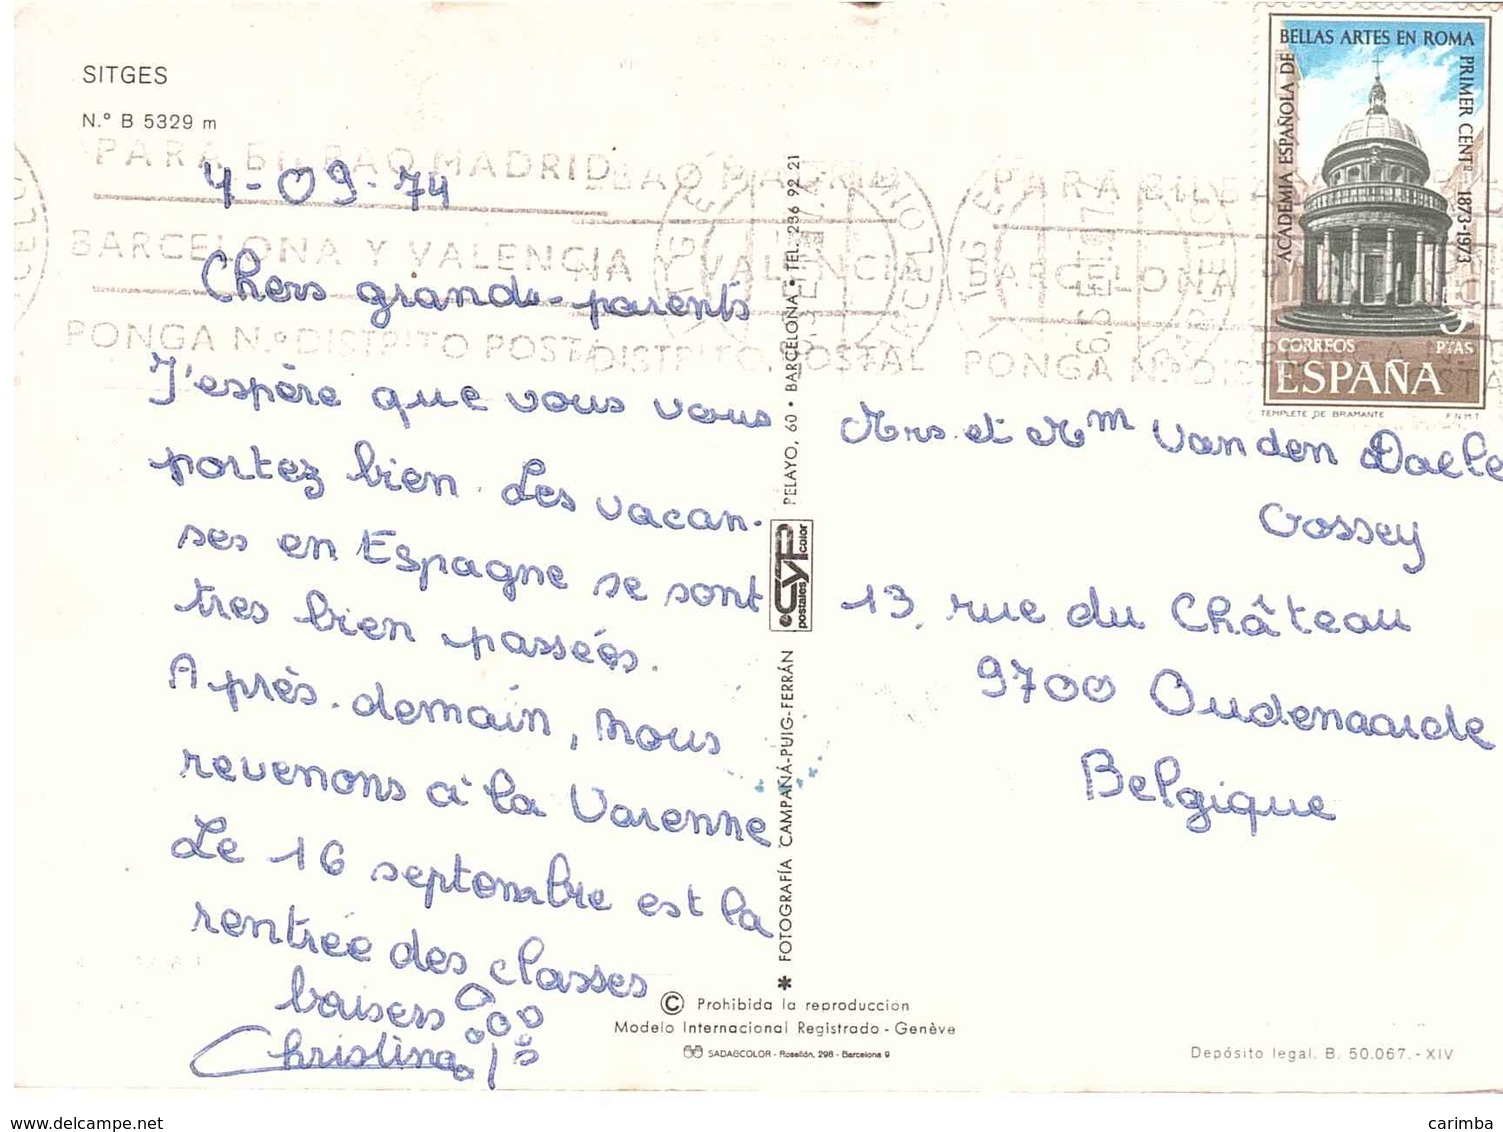 SITGES
N.º B 5329 m
PARA BILBAO, MADRID
BARCELONA Y VALENCIA
PONGA N.º DISTRITO POSTAL
4-09-74
Chers grands-parents
J'espère que vous vous
portez bien. Les vacan-
ses en Espagne se sont
tres bien passéés.
Après-demain, nous
revenons à la Varenne
Le 16 septembre est la
rentrée des classes
baisers
Christina
✱ FOTOGRAFÍA CAMPAÑÁ-PUIG-FERRÁN
CYP color
postales
PELAYO, 60 • BARCELONA • TEL. 236 92 21
© Prohibida la reproduccion
Modelo Internacional Registrado - Genève
SADAGCOLOR - Rosellón, 298 - Barcelona 9
ACADEMIA ESPAÑOLA DE
BELLAS ARTES EN ROMA
PRIMER CENTº 1873-1973
5
CORREOS PTAS
ESPAÑA
TEMPLETE DE BRAMANTE F.N.M.T.
PARA BILBAO
BARCELONA
PONGA N.º DISTRITO POSTAL
Mrs. et Mm Van den Daele
Gossey
13, rue du Château
9700 Oudenaarde
Belgique
Depósito legal. B. 50.067.-XIV
www.delcampe.net
carimba